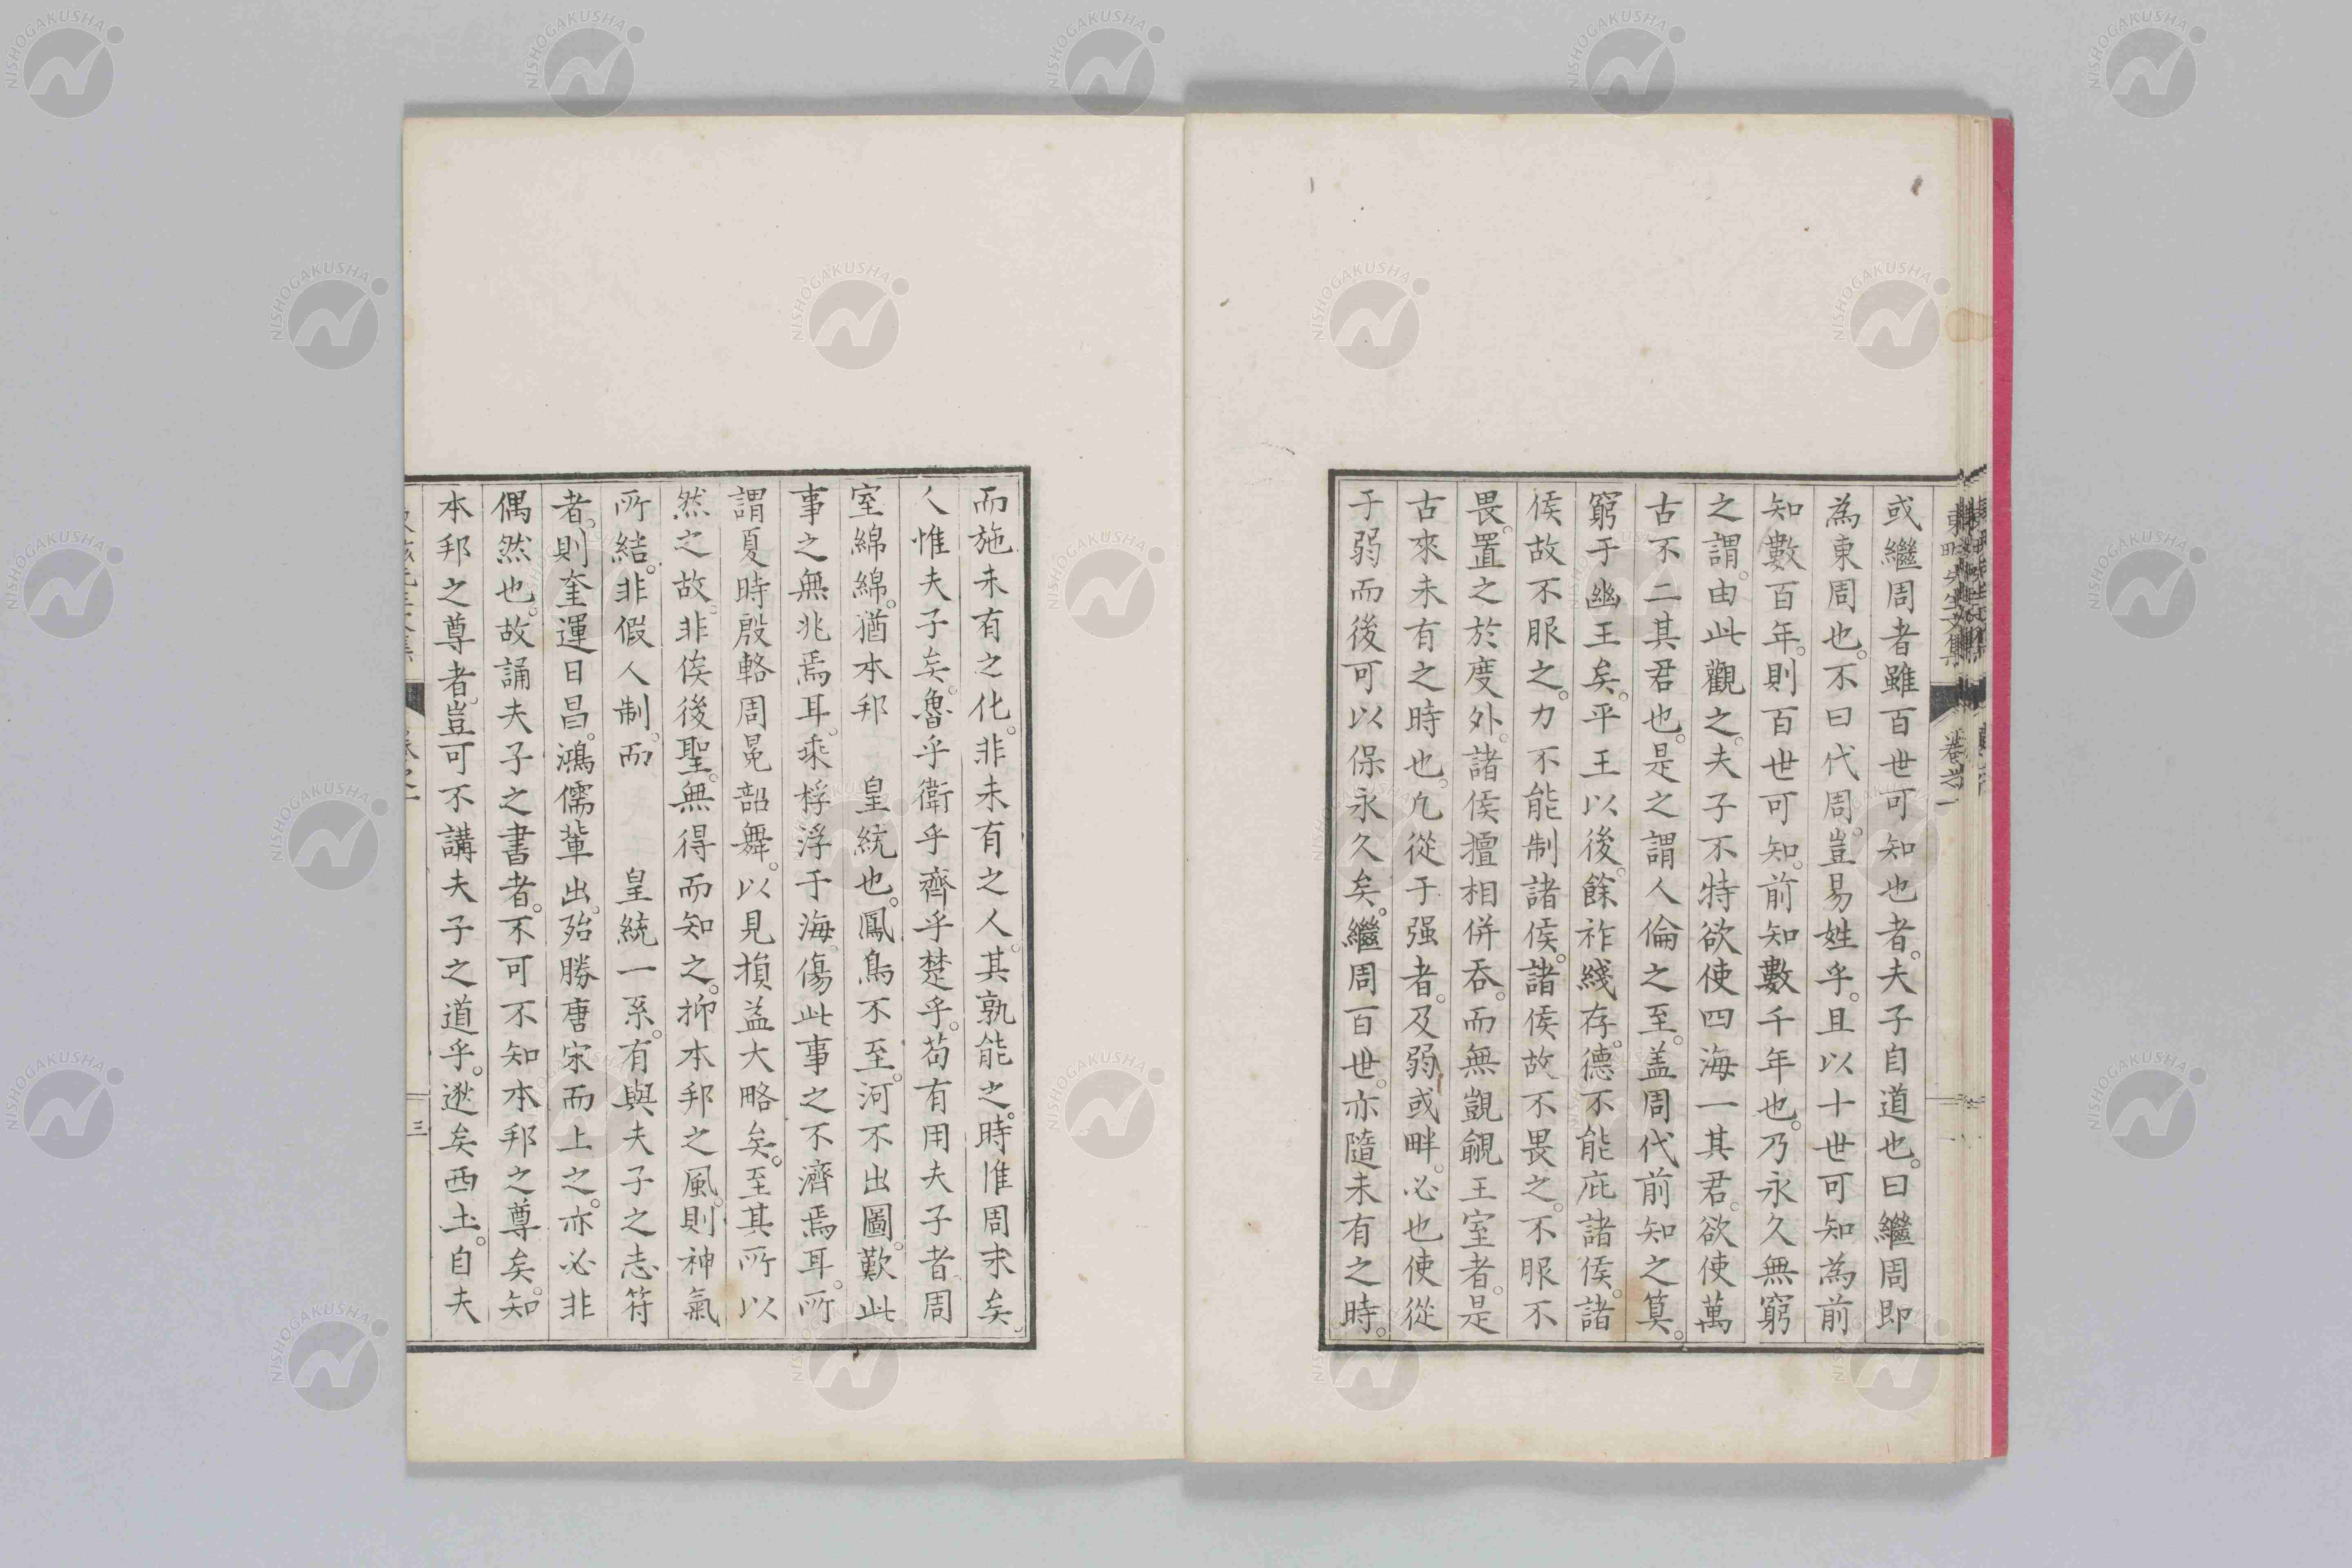 或繼周者雖百世可知也者。夫子自道也。曰繼周即
為東周也。不曰代周。豈易姓乎。且以十世可知為前
知數百年。則百世可知。前知數千年也。乃永久無窮
之謂。由此觀之。夫子不特欲使四海一其君。欲使萬
古不二其君也。是之謂人倫之至。盖周代前知之算。
窮于幽王矣。平王以後。餘祚綫存。德不能庇諸侯。諸
侯故不服之。力不能制諸侯。諸侯故不畏之。不服不
畏。置之於度外。諸侯擅相併吞。而無覬覦王室者。是
古來未有之時也。凡從于强者。及弱或畔。必也使從
于弱而後可以保永久矣。繼周百世。亦隨未有之時。
而施未有之化。非未有之人。其孰能之。時惟周末矣
人惟夫子矣。魯乎衛乎齊乎楚乎。苟有用夫子者。周
室綿綿。猶本邦 皇統也。鳳鳥不至。河不出圖。歎此
事之無兆焉耳。乘桴浮于海。傷此事之不濟焉耳。所
謂夏時殷輅周冕韶舞。以見損益大略矣。至其所以
然之故。非俟後聖。無得而知之。抑本邦之風。則神氣
所結。非假人制。而 皇統一系。有與夫子之志符
者。則奎運日昌。鴻儒輩出。殆勝唐宋而上之。亦必非
偶然也。故誦夫子之書者。不可不知本邦之尊矣。知
本邦之尊者。豈可不講夫子之道乎。逖矣西土。自夫
三
NISHOGAKUSHA